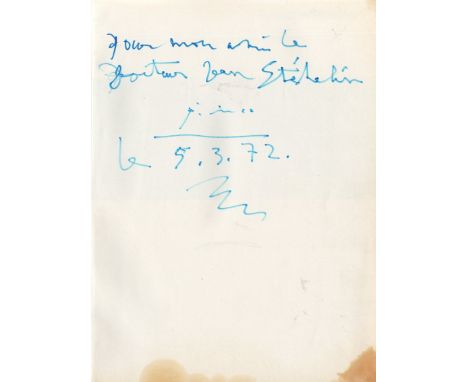 Pour mon ami le
Docteur Jean Stéhelin
le 5.3.72.